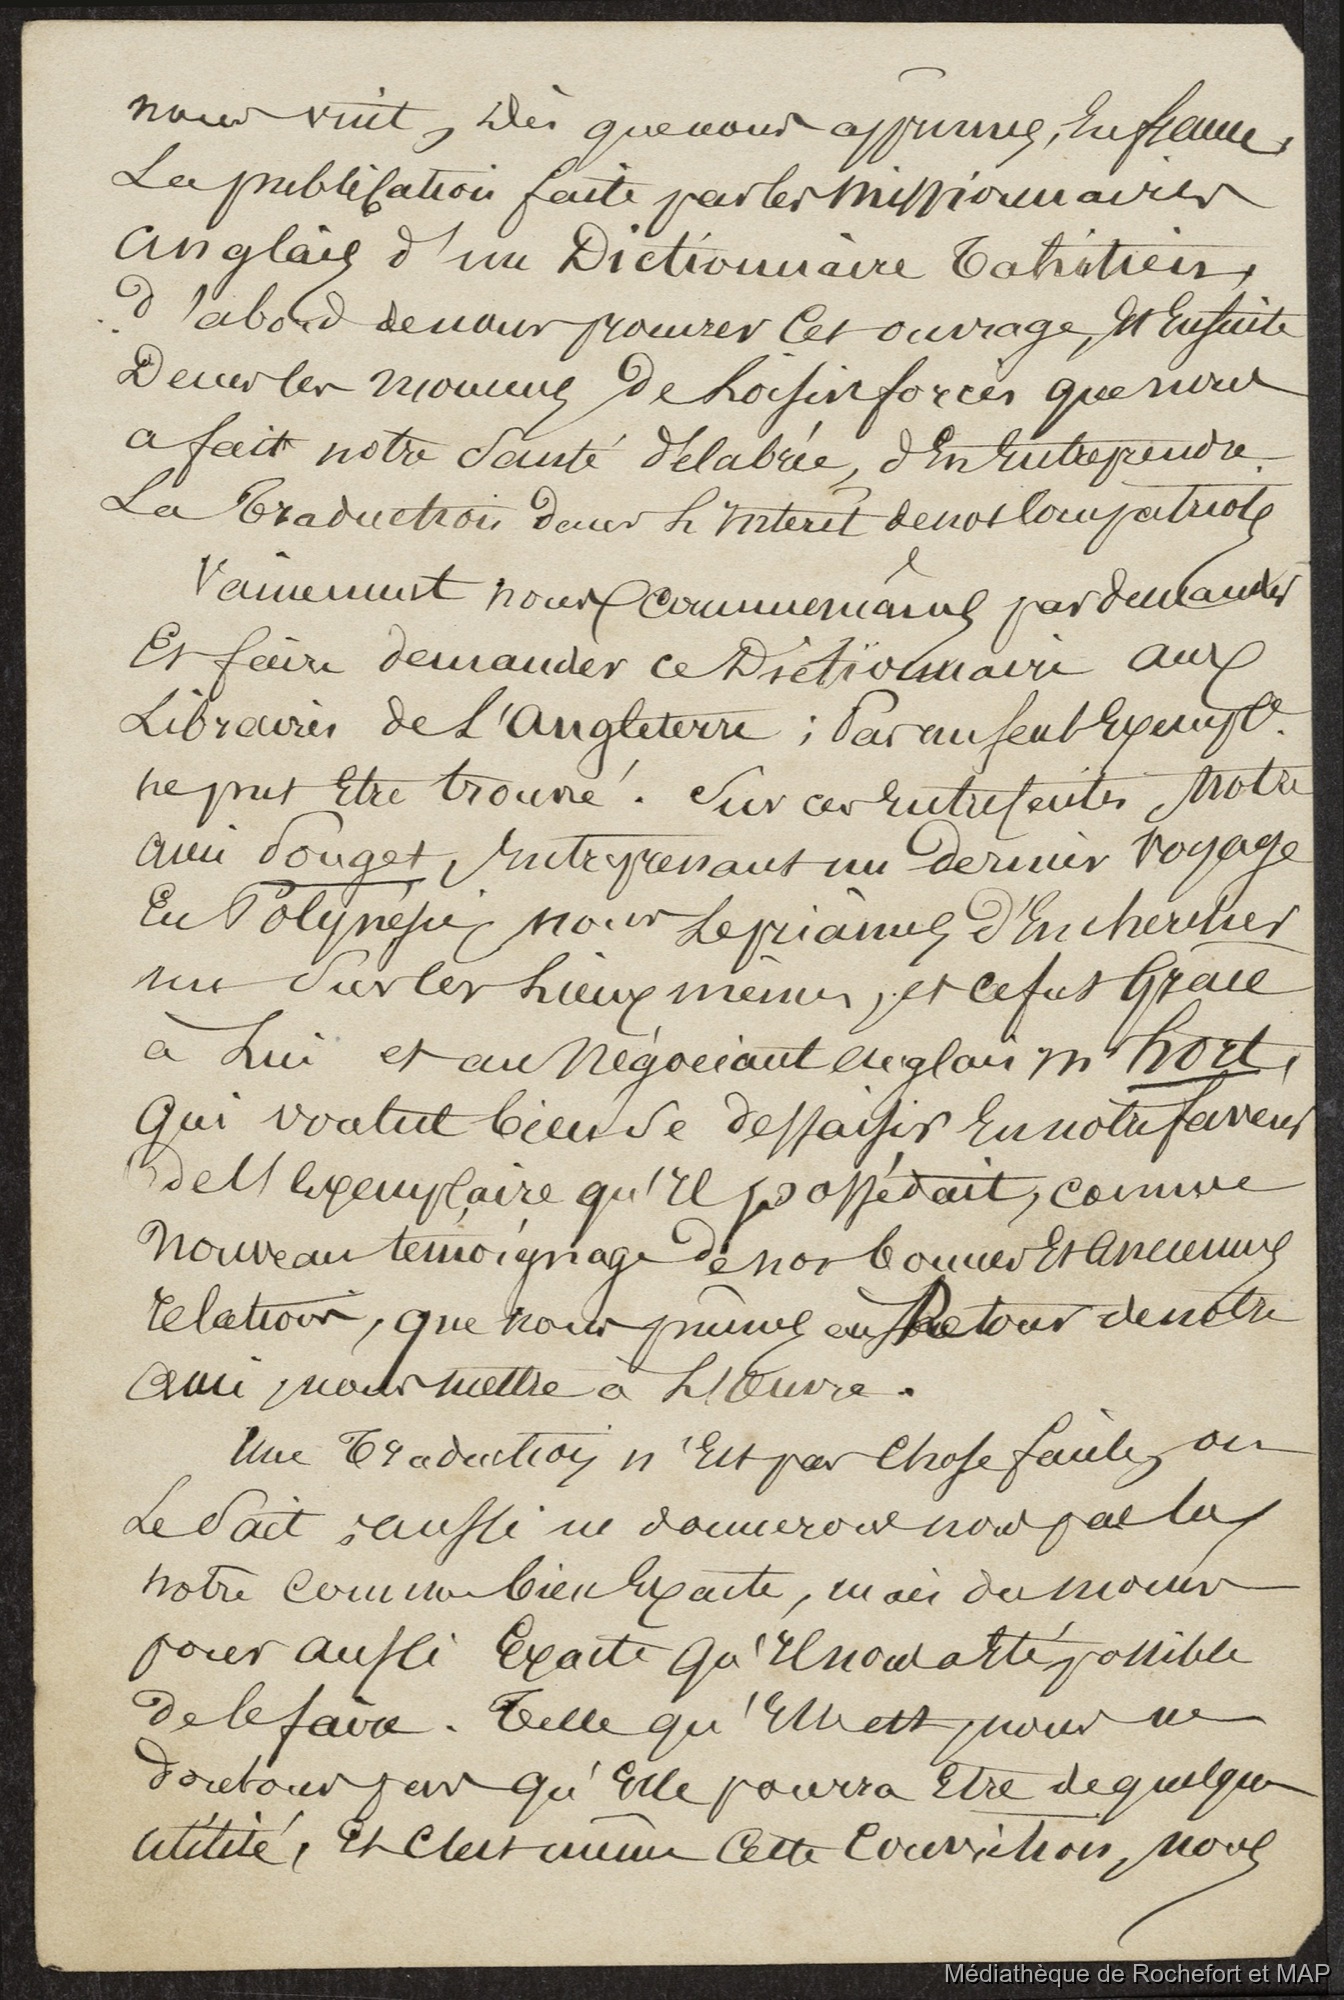 nous vint, Dès que nous apprimes, En france,
La publication faite par les Missionnaires
Anglais d'un Dictionnaire Tahitien,
d'abord de nous procurer Cet ouvrage, Et Ensuite
Dans les momens De Loisir forcés que nous
a fait notre Santé délabrée, d'En Entreprendre
La Traduction dans L'interêt de nos Compatriotes
Vainement nous commençâmes par demander
Et faire demander ce Dictionnaire aux
Libraires de L'Angleterre ; Pas un seul Exempl.e
ne put Etre trouvé. Sur ces Entrefaites, Notre
ami Pouget, Entreprenant un Dernier voyage
En Polynésie, nous Le priâmes D'En chercher
un Sur les Lieux mêmes, et ce fut Grâce
à Lui et au Négociant anglais Mr hort,
Qui voulut bien Se dessaisir En notre faveur
de l'Exemplaire qu'Il possédait, comme
Nouveau témoignage De nos bonnes Et Anciennes
relations, que nous pûmes au Retour de notre
ami nous mettre à L'Œuvre.
Une Traduction n'Est pas Chose facile, on
Le Sait ; aussi ne donnerons nous pas la
notre comme bien Exacte, mais du moins
pour aussi Exacte Qu'Il nous a Eté possible
De le faire. Telle qu'Elle est, nous ne
doutons pas qu'Elle pourra Etre de quelque
utilité, Et C'est même Cette Conviction, nous
Médiathèque de Rochefort et MAP